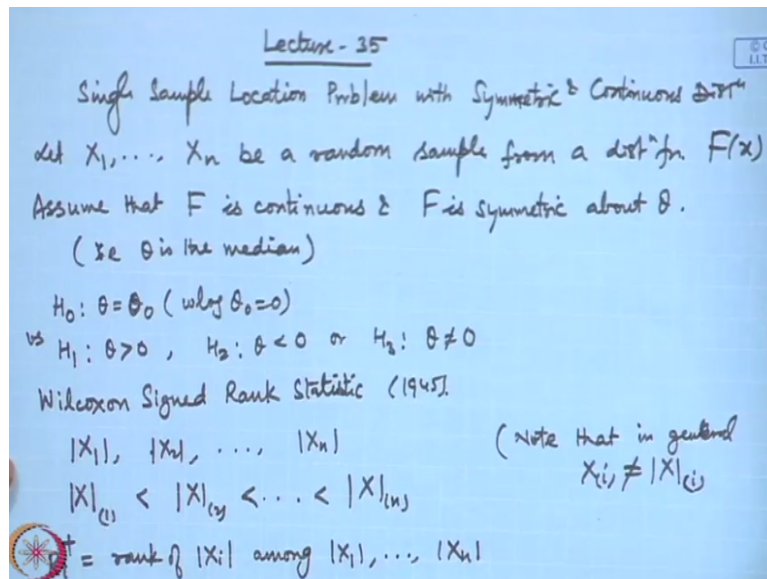 Lecture - 35
© 
I.I.T
Single Sample Location Problem with Symmetric & Continuous Distⁿ
Let X₁, ..., Xₙ be a random sample from a distⁿ fn. F(x)
Assume that F is continuous & F is symmetric about θ.
(ie θ is the median)
H₀: θ = θ₀ (wlog θ₀=0)
vs H₁: θ>0, H₂: θ<0 or H₃: θ≠0
Wilcoxon Signed Rank Statistic (1945).
|X₁|, |X₂|, ..., |Xₙ| (Note that in general
|X|₍₁₎ < |X|₍₂₎ < ... < |X|₍ₙ₎ X₍ᵢ₎ ≠ |X|₍ᵢ₎
= rank of |Xᵢ| among |X₁|, ..., |Xₙ|